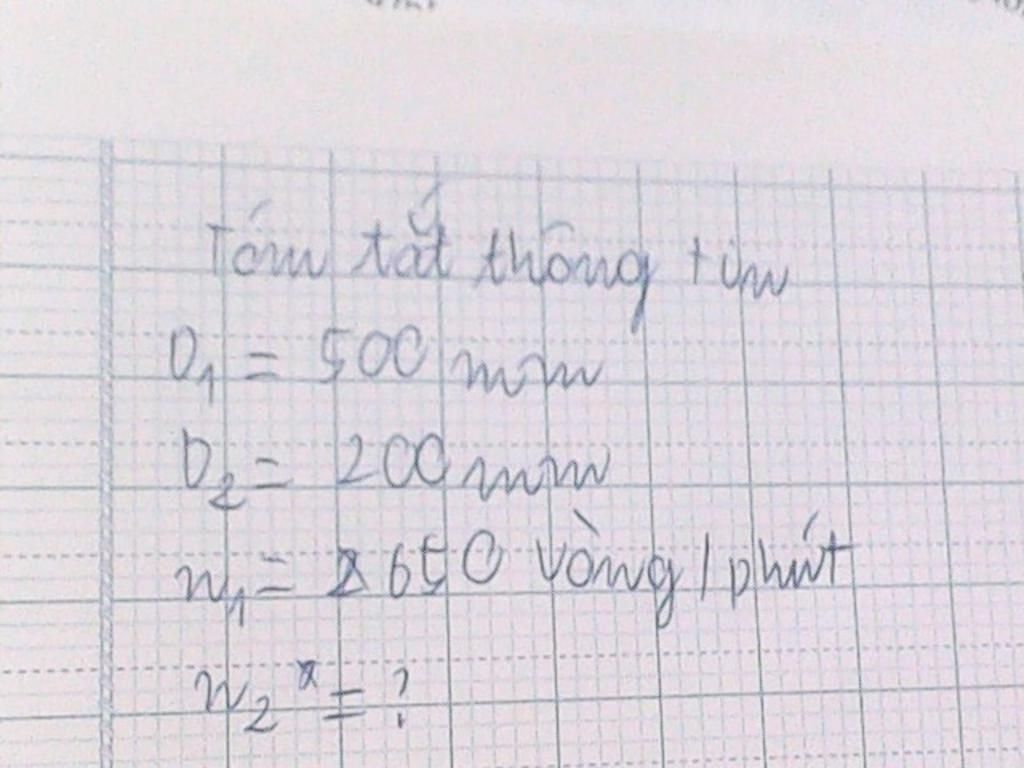 Tóm tắt thông tin
D₁ = 500 mm
D₂ = 200 mm
n₁ = 650 vòng / phút
n₂ = ?